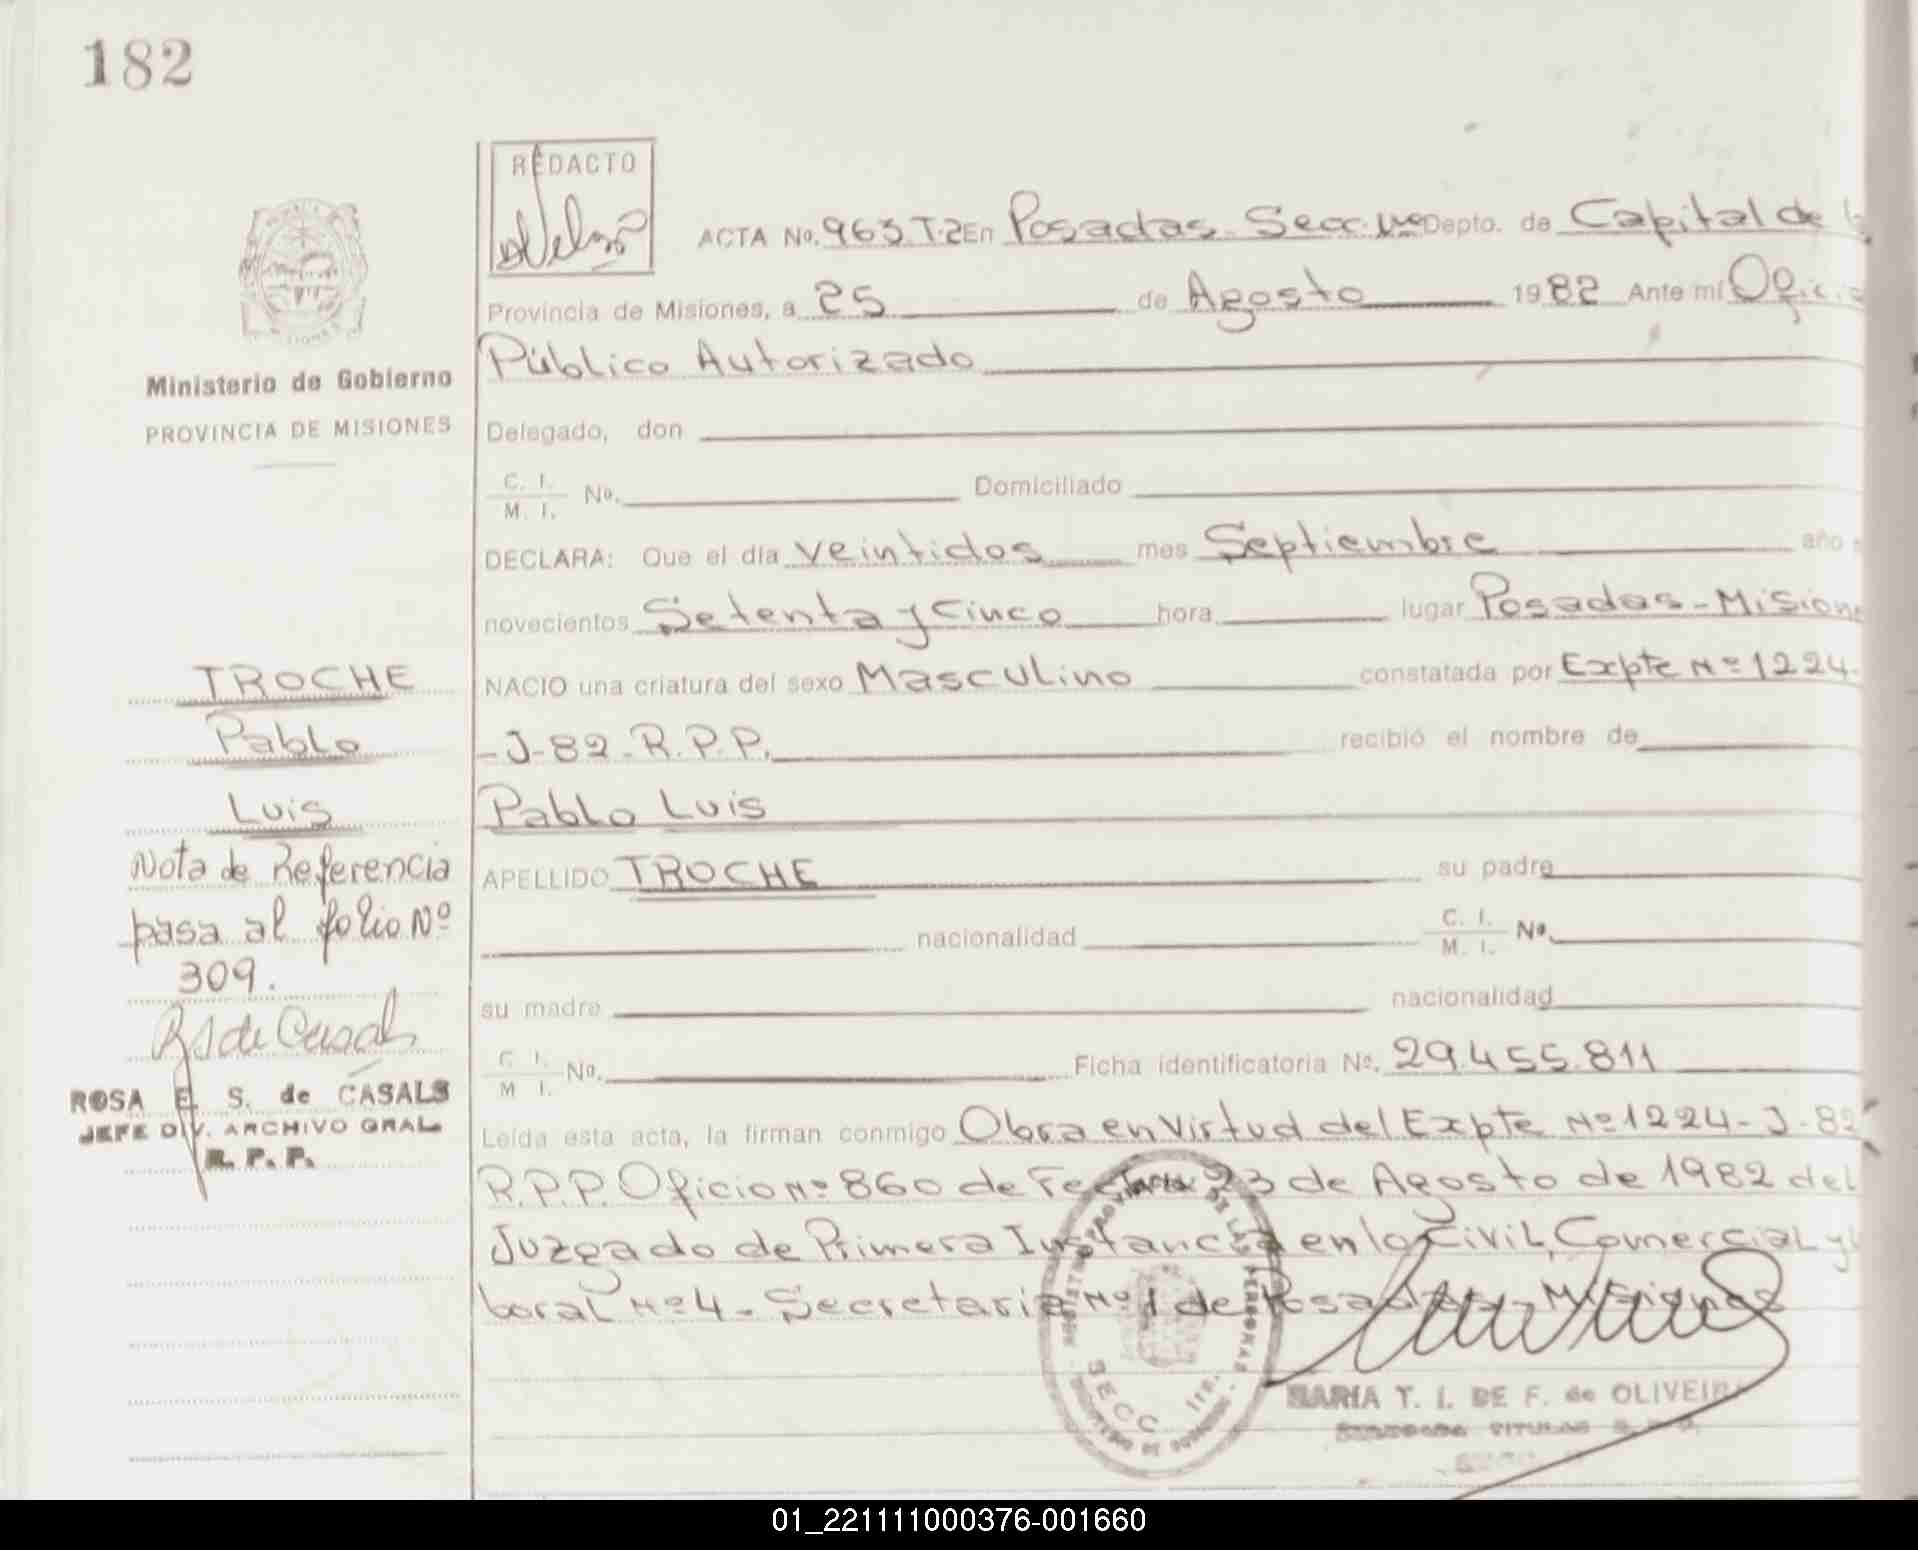 182
REDACTO
ACTA No. 963. T.2 En Posadas - Secc. 1ra Depto. de Capital de
Provincia de Misiones, a 25 de Agosto 1982 Ante mí
Público Autorizado
Ministerio de Gobierno
PROVINCIA DE MISIONES
Delegado, don
C. I.
M. I. No. Domiciliado
DECLARA: Que el día veintidos mes Septiembre año
novecientos Setenta y Cinco hora lugar Posadas - Mision
TROCHE
NACIO una criatura del sexo Masculino constatada por Expte Nº 1224-
Pablo
-J-82-R.P.P. recibió el nombre de
Luis
Pablo Luis
Nota de Referencia
pasa al folio Nº
309.
APELLIDO TROCHE su padre
nacionalidad C. I.
M. I. Nº.
su madre nacionalidad
C. I.
M I. Nº. Ficha identificatoria Nº. 29.455.811
ROSA E. S. de CASALS
JEFE DIV. ARCHIVO GRAL.
R. P. P.
Leída esta acta, la firman conmigo Obra en Virtud del Expte Nº 1224-J-82
R.P.P. Oficio Nº 860 de Fecha 23 de Agosto de 1982 del
Juzgado de Primera Instancia en lo Civil, Comercial y
boral Nº 4 - Secretaria Nº 1 de Posadas - Misiones
SECC. 1ra.
MARIA T. I. DE F. de OLIVEIRA
01_221111000376-001660